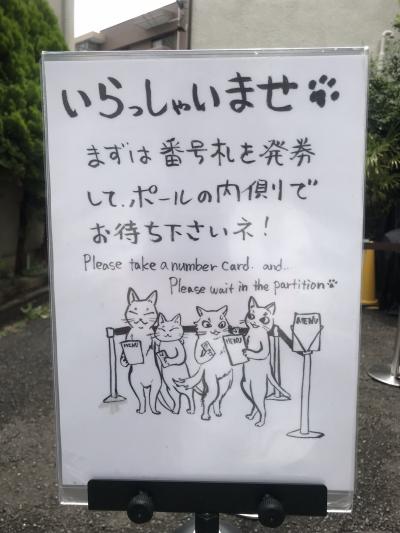 いらっしゃいませ
まずは番号札を発券
して、ポールの内側りで
お待ち下さいネ!
Please take a number card. and..
Please wait in the partition
MENU
MENU
MENU